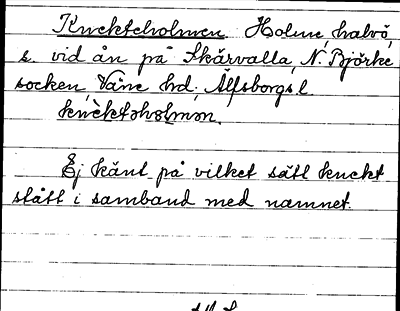 Knekteholmen. Holme, halvö,
s. vid ån på Skärvalla, N. Björke
socken, Väne hd. Älfsborgs l.
knèktəhɷlmən.
Ej känt på vilket sätt knekt
stått i samband med namnet.